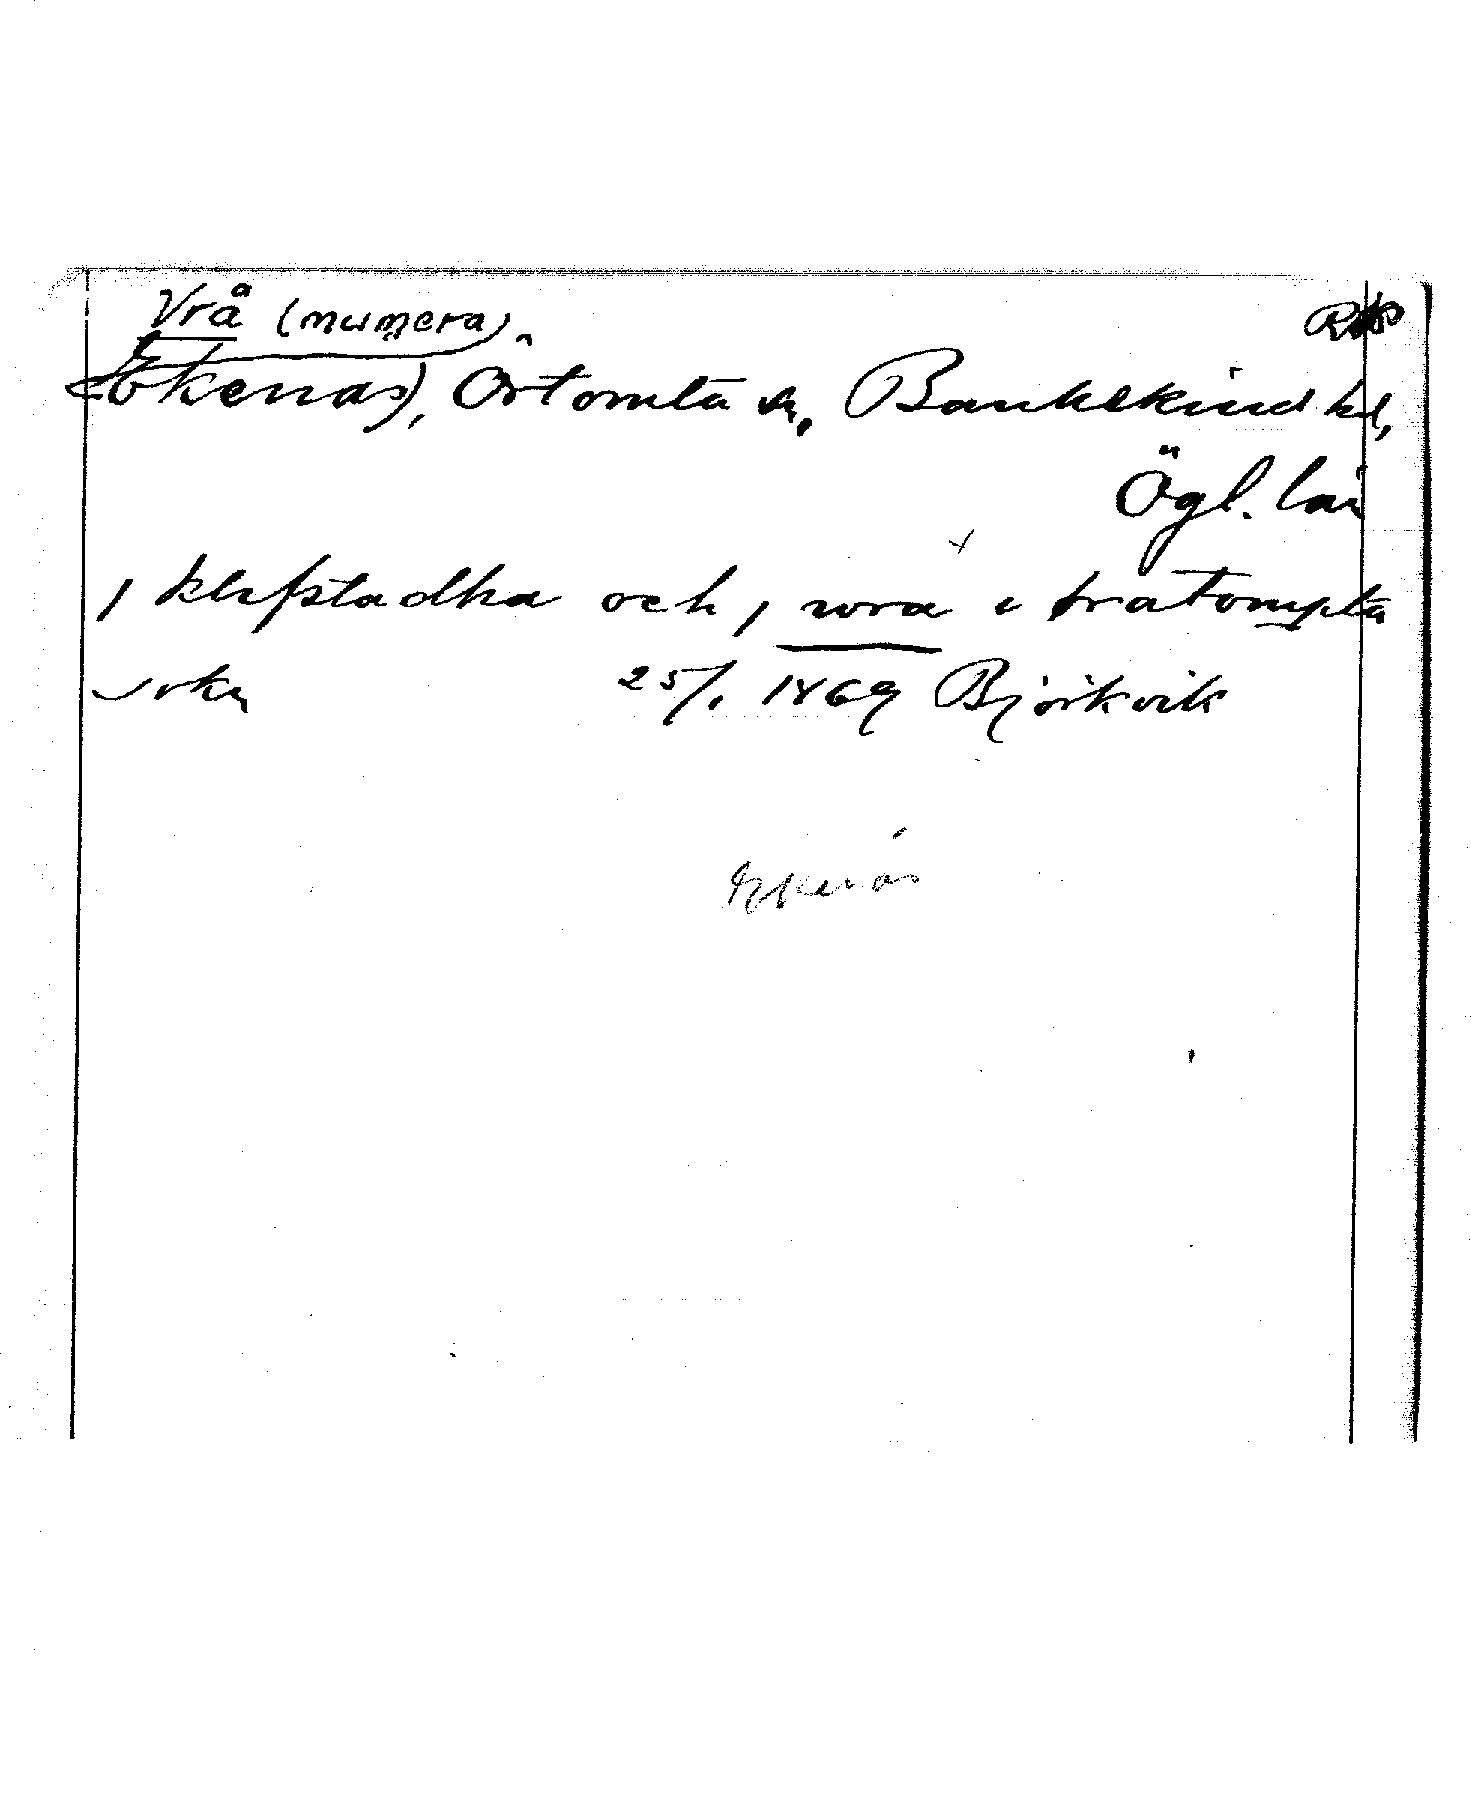 Vrå (numera
Ekenäs), Örtomta sn, Bankekind hd,
Ögl. län
1 klefstadha och 1 wra i øratompta
sokn 25/1 1469 Björkvik
Ekenäs